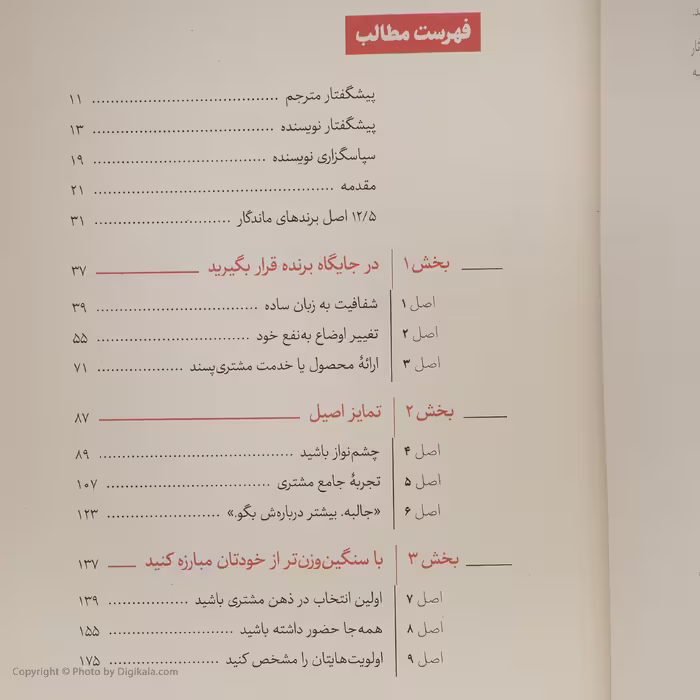 فهرست مطالب
پیشگفتار مترجم ........................................ ۱۱
پیشگفتار نویسنده ........................................ ۱۳
سپاسگزاری نویسنده ...................................... ۱۹
مقدمه ..................................................... ۲۱
۱۲/۵ اصل برندهای ماندگار .............................. ۳۱
بخش ۱ در جایگاه برنده قرار بگیرید ۳۷
اصل ۱ شفافیت به زبان ساده .................................. ۳۹
اصل ۲ تغییر اوضاع به‌نفع خود ................................ ۵۵
اصل ۳ ارائهٔ محصول یا خدمت مشتری‌پسند .................. ۷۱
بخش ۲ تمایز اصیل ۸۷
اصل ۴ چشم‌نواز باشید ........................................ ۸۹
اصل ۵ تجربهٔ جامع مشتری .................................. ۱۰۷
اصل ۶ «جالبه. بیشتر درباره‌ش بگو.» ........................ ۱۲۳
بخش ۳ با سنگین‌وزن‌تر از خودتان مبارزه کنید ۱۳۷
اصل ۷ اولین انتخاب در ذهن مشتری باشید ................. ۱۳۹
اصل ۸ همه‌جا حضور داشته باشید .......................... ۱۵۵
اصل ۹ اولویت‌هایتان را مشخص کنید ....................... ۱۷۵
Copyright © Photo by Digikala.com